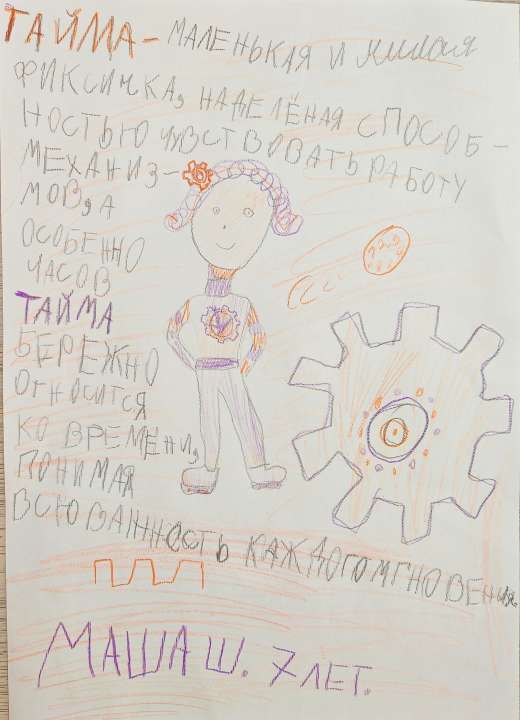 ТАЙМА – МАЛЕНЬКАЯ И МИЛАЯ
ФИКСИЧКА, НАДЕЛЁНАЯ СПОСОБ-
НОСТЬЮ ЧУВСТВОВАТЬ РАБОТУ
МЕХАНИЗ-
МОВ, А
ОСОБЕННО
ЧАСОВ
ТАЙМА
БЕРЕЖНО
ОТНОСИТСЯ
КО ВРЕМЕНИ,
ПОНИМАЯ
ВСЮ ВАЖНОСТЬ КАЖДОГО МГНОВЕНИЯ.
МАША Ш. 7 ЛЕТ.